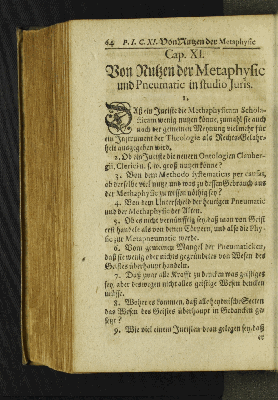 64 P. I. C. XI. Von Nutzen der Metaphysic
Cap. XI.
Von Nutzen der Metaphysic
und Pneumatic in studio Juris.
1.
Daß ein Juriste die Methaphysicam Schola-
sticam wenig nutzen könne, zumahl sie auch
nach der gemeinen Meynung vielmehr für
ein Instrument der Theologia als Rechts-Gelahr-
heit ausgegeben wird.
2. Ob ein Juriste die neuern Ontologien Clauber-
gii, Clerici, s. w. groß nutzen könne?
3. Von dem Methodo systematicus per causas,
ob derselbe viel nutze und was zu dessen Gebrauch aus
der Methaphysic zu wissen nöthig sey?
4. Von dem Unterscheid der heurigen Pneumatic
und der Methaphysic der Alten.
5. Ob es nicht vernünfftig sey, daß man von Geist
erst handele als von denen Cörpern, und also die Phy-
sic zur Metapneumatic werde.
6. Vom gemeinen Mangel der Pneumaticken,
daß sie wenig oder nichts gegründetes von Wesen des
Geistes überhaupt handeln.
7. Daß zwar alle Krafft zu dencken was geistiges
sey, aber deswegen nicht alles geistige Wesen dencken
müsse.
8. Woher es kommen, daß alle heydnische Secten
das Wesen des Geistes überhaupt in Gedancken ge-
setzt?
9. Wie viel einem Juristen dran gelegen sey, daß
er